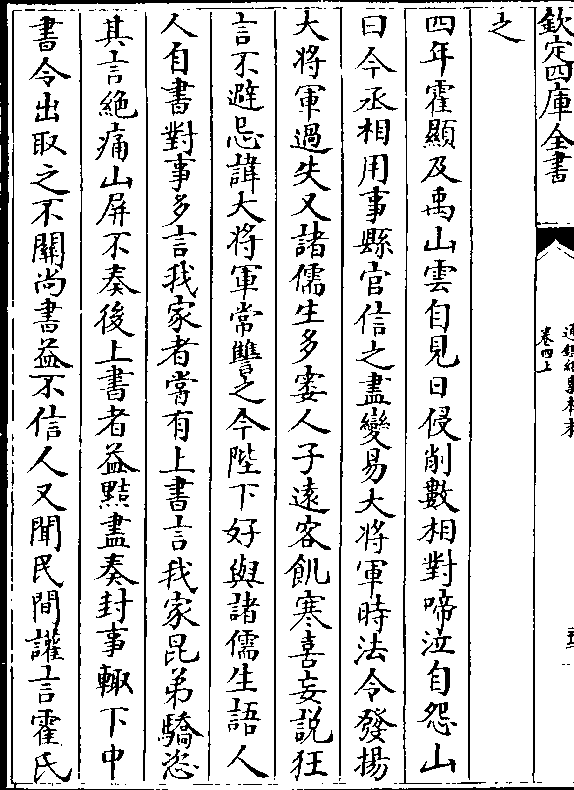 欽定四庫全書
卷四上
之
四年霍顯及禹山雲自見日侵削數相對啼泣自怨山
曰今丞相用事縣官信之盡變易大將軍時法令發揚
大將軍過失又諸儒生多窶人子遠客飢寒喜妄說狂
言不避忌諱大將軍常讐之今陛下好與諸儒生語人
人自書對事多言我家者嘗有上書言我家昆弟驕恣
其言絶痛山屏不奏後上書者益黠盡奏封事輙下中
書令出取之不關尚書益不信人又聞民間讙言霍氏